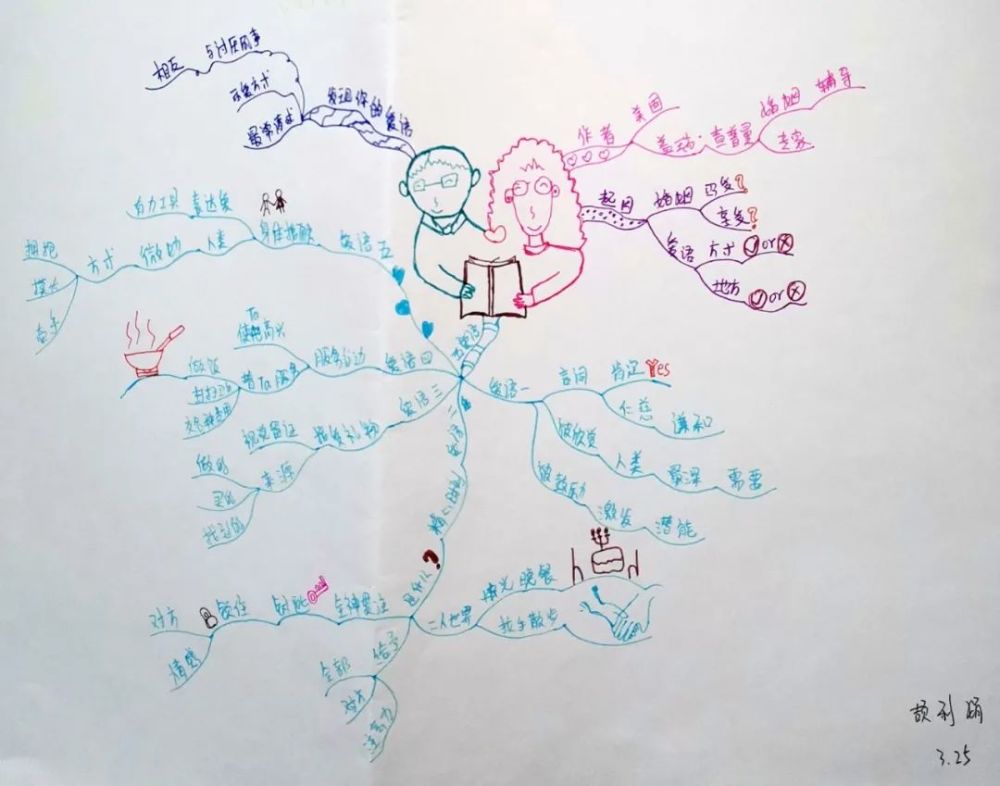 发现你的爱语
最常请求
可爱方式
与讨厌的事
相反
作者
美国
盖瑞·查普曼
婚姻 辅导
专家
起因
婚姻
巧爱?
幸爱?
爱语 方式 ✓or✗
地方 ✓or✗
五爱语
爱语一
言词
肯定 Yes
仁慈
谦和
被欣赏
人类
最深
需要
被鼓励
激发
潜能
爱语二
精心时刻
是什么?
二人世界
烛光晚餐
拉手散步
给予
全部
对方
注意力
全神贯注
钥匙
锁住
对方
情感
爱语三
接受礼物
视觉凭证
来源
做的
买的
找到的
爱语四
服务行动
使Ta高兴
替Ta服务
做饭
爱语五
身体接触
表达爱
有力工具
人类
微妙
方式
拥抱
牵手
颉利娟
3.25